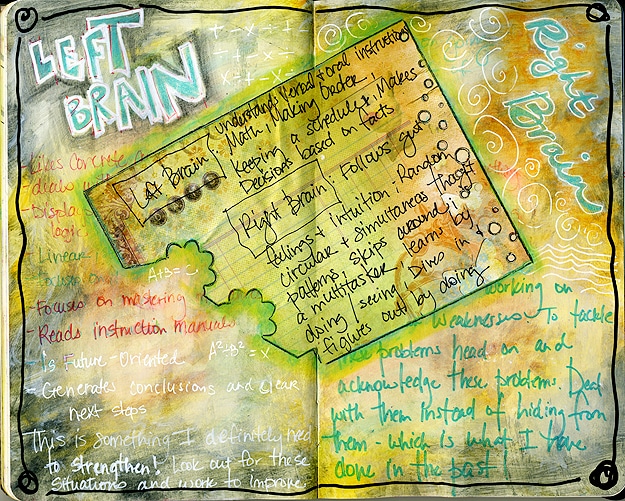 LEFT
BRAIN
Right
Brain
Left Brain
understands verbal + oral instructions
Math, Making Order,
Keeping a schedule, Makes
Decisions based on facts
Right Brain: Follows gut
feelings + intuition, Random
circular + simultaneous thought
patterns, skips around,
a multitasker learns by
doing / seeing Dives in &
figures out by doing
- Likes Concrete
- deals
- Displays
logic
- Linear
- Focuses on mastering
- Reads instruction manuals
- is Future-Oriented
- Generates conclusions and clear
next steps
This is something I definitely need
to strengthen! Look out for these
Situations and work to improve.
A+B=C
A²+B²=X
working on
weaknesses. To tackle
these problems head on and
acknowledge these problems. Deal
with them instead of hiding from
them - which is what I have
done in the past!